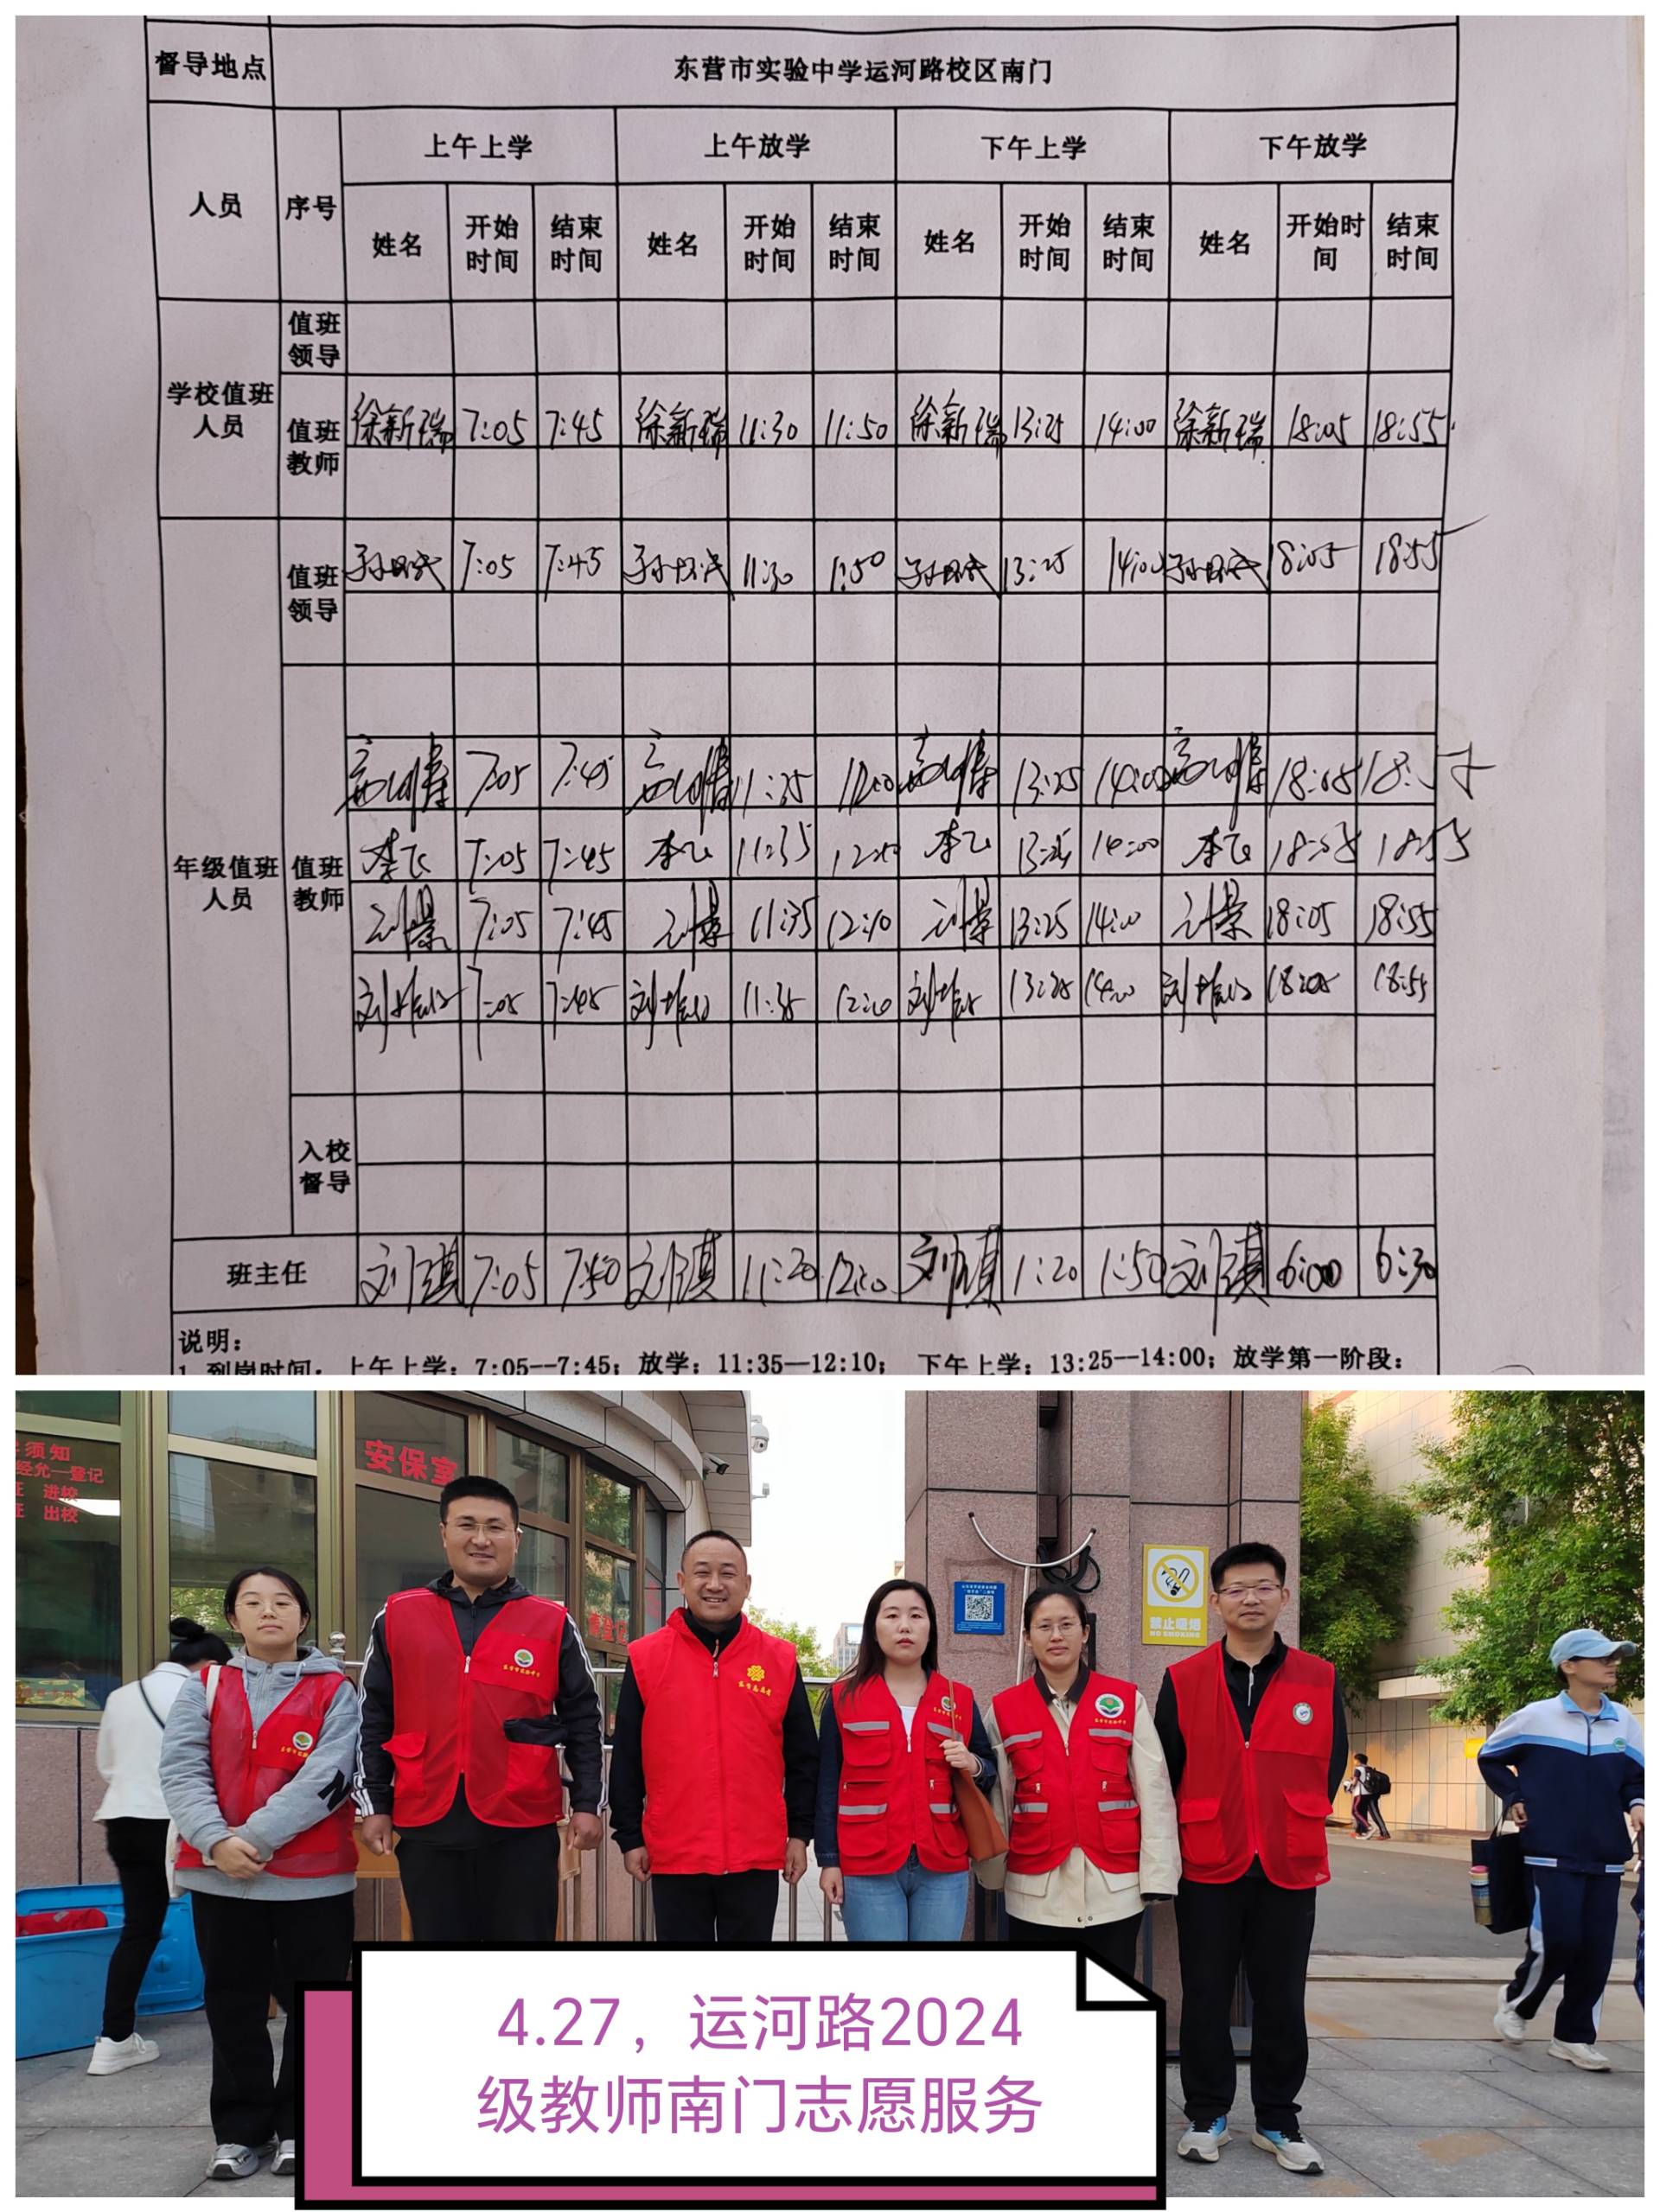 督导地点 东营市实验中学运河路校区南门
人员 序号 上午上学 上午放学 下午上学 下午放学
姓名 开始时间 结束时间 姓名 开始时间 结束时间 姓名 开始时间 结束时间 姓名 开始时间 结束时间
学校值班人员
值班领导
值班教师 徐新瑞 7:05 7:45 徐新瑞 11:30 11:50 徐新瑞 13:25 14:00 徐新瑞 18:05 18:55
年级值班人员
值班领导 7:05 7:45 11:30 13:25 14:00 18:05 18:55
值班教师
7:05 7:45 11:35 13:25 14:00 18:05 18:55
李飞 7:05 7:45 李飞 11:35 李飞 13:25 14:00 李飞 18:05 18:55
刘景 7:05 7:45 刘景 11:35 12:10 刘景 13:25 14:00 刘景 18:05 18:55
7:05 7:45 11:35 12:10 13:25 14:00 18:05 18:55
入校督导
班主任 刘琪 7:05 7:50 刘琪 11:20 刘琪 1:20 1:50 刘琪 6:00 6:30
说明：
1、到岗时间：上午上学：7:05--7:45；放学：11:35—12:10； 下午上学：13:25--14:00；放学第一阶段：
须知
经允—登记
证 进校
证 出校
安保室
禁止吸烟
NO SMOKING
4.27，运河路2024
级教师南门志愿服务